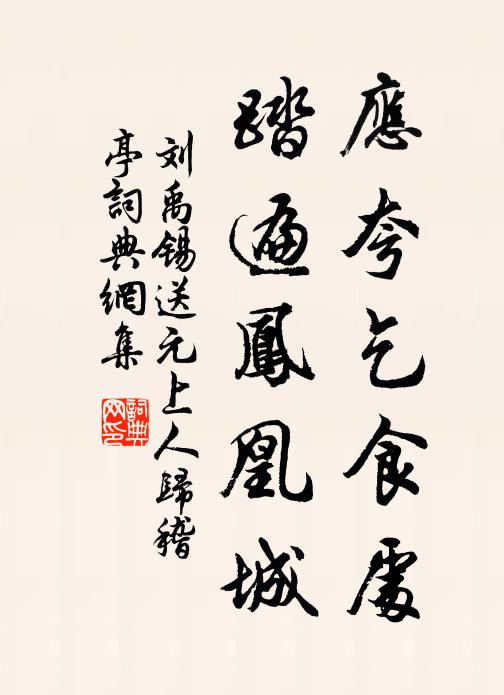 應夸乞食處
踏遍鳳凰城
刘禹锡送元上人歸稽
亭詞典網集
詞典网印